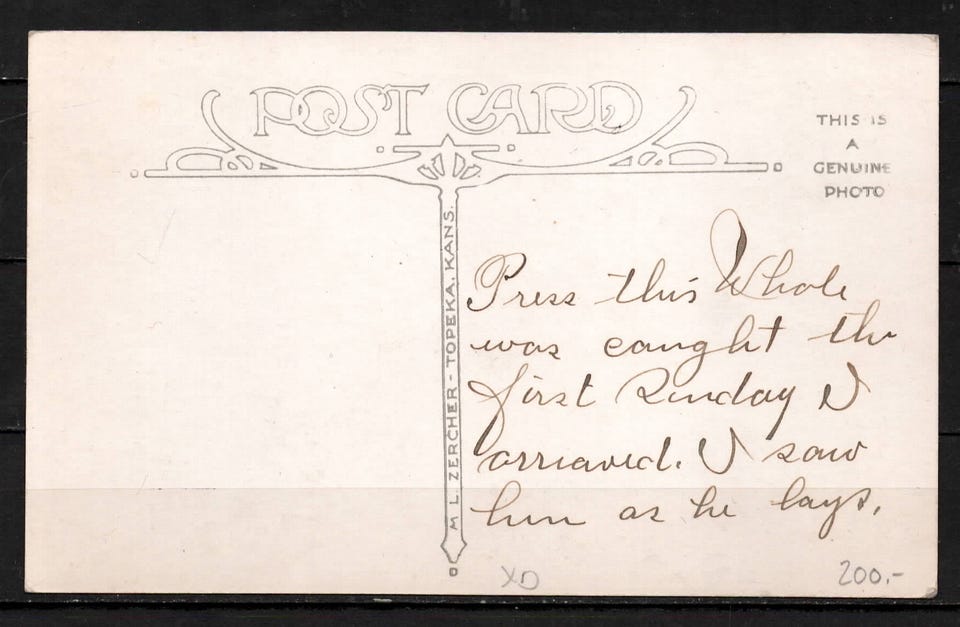 POST CARD
THIS IS
A
GENUINE
PHOTO
M L. ZERCHER - TOPEKA, KANS.
Press this Whole
was caught the
first Sunday I
arriaved. I saw
him as he lays.
XD
200.-